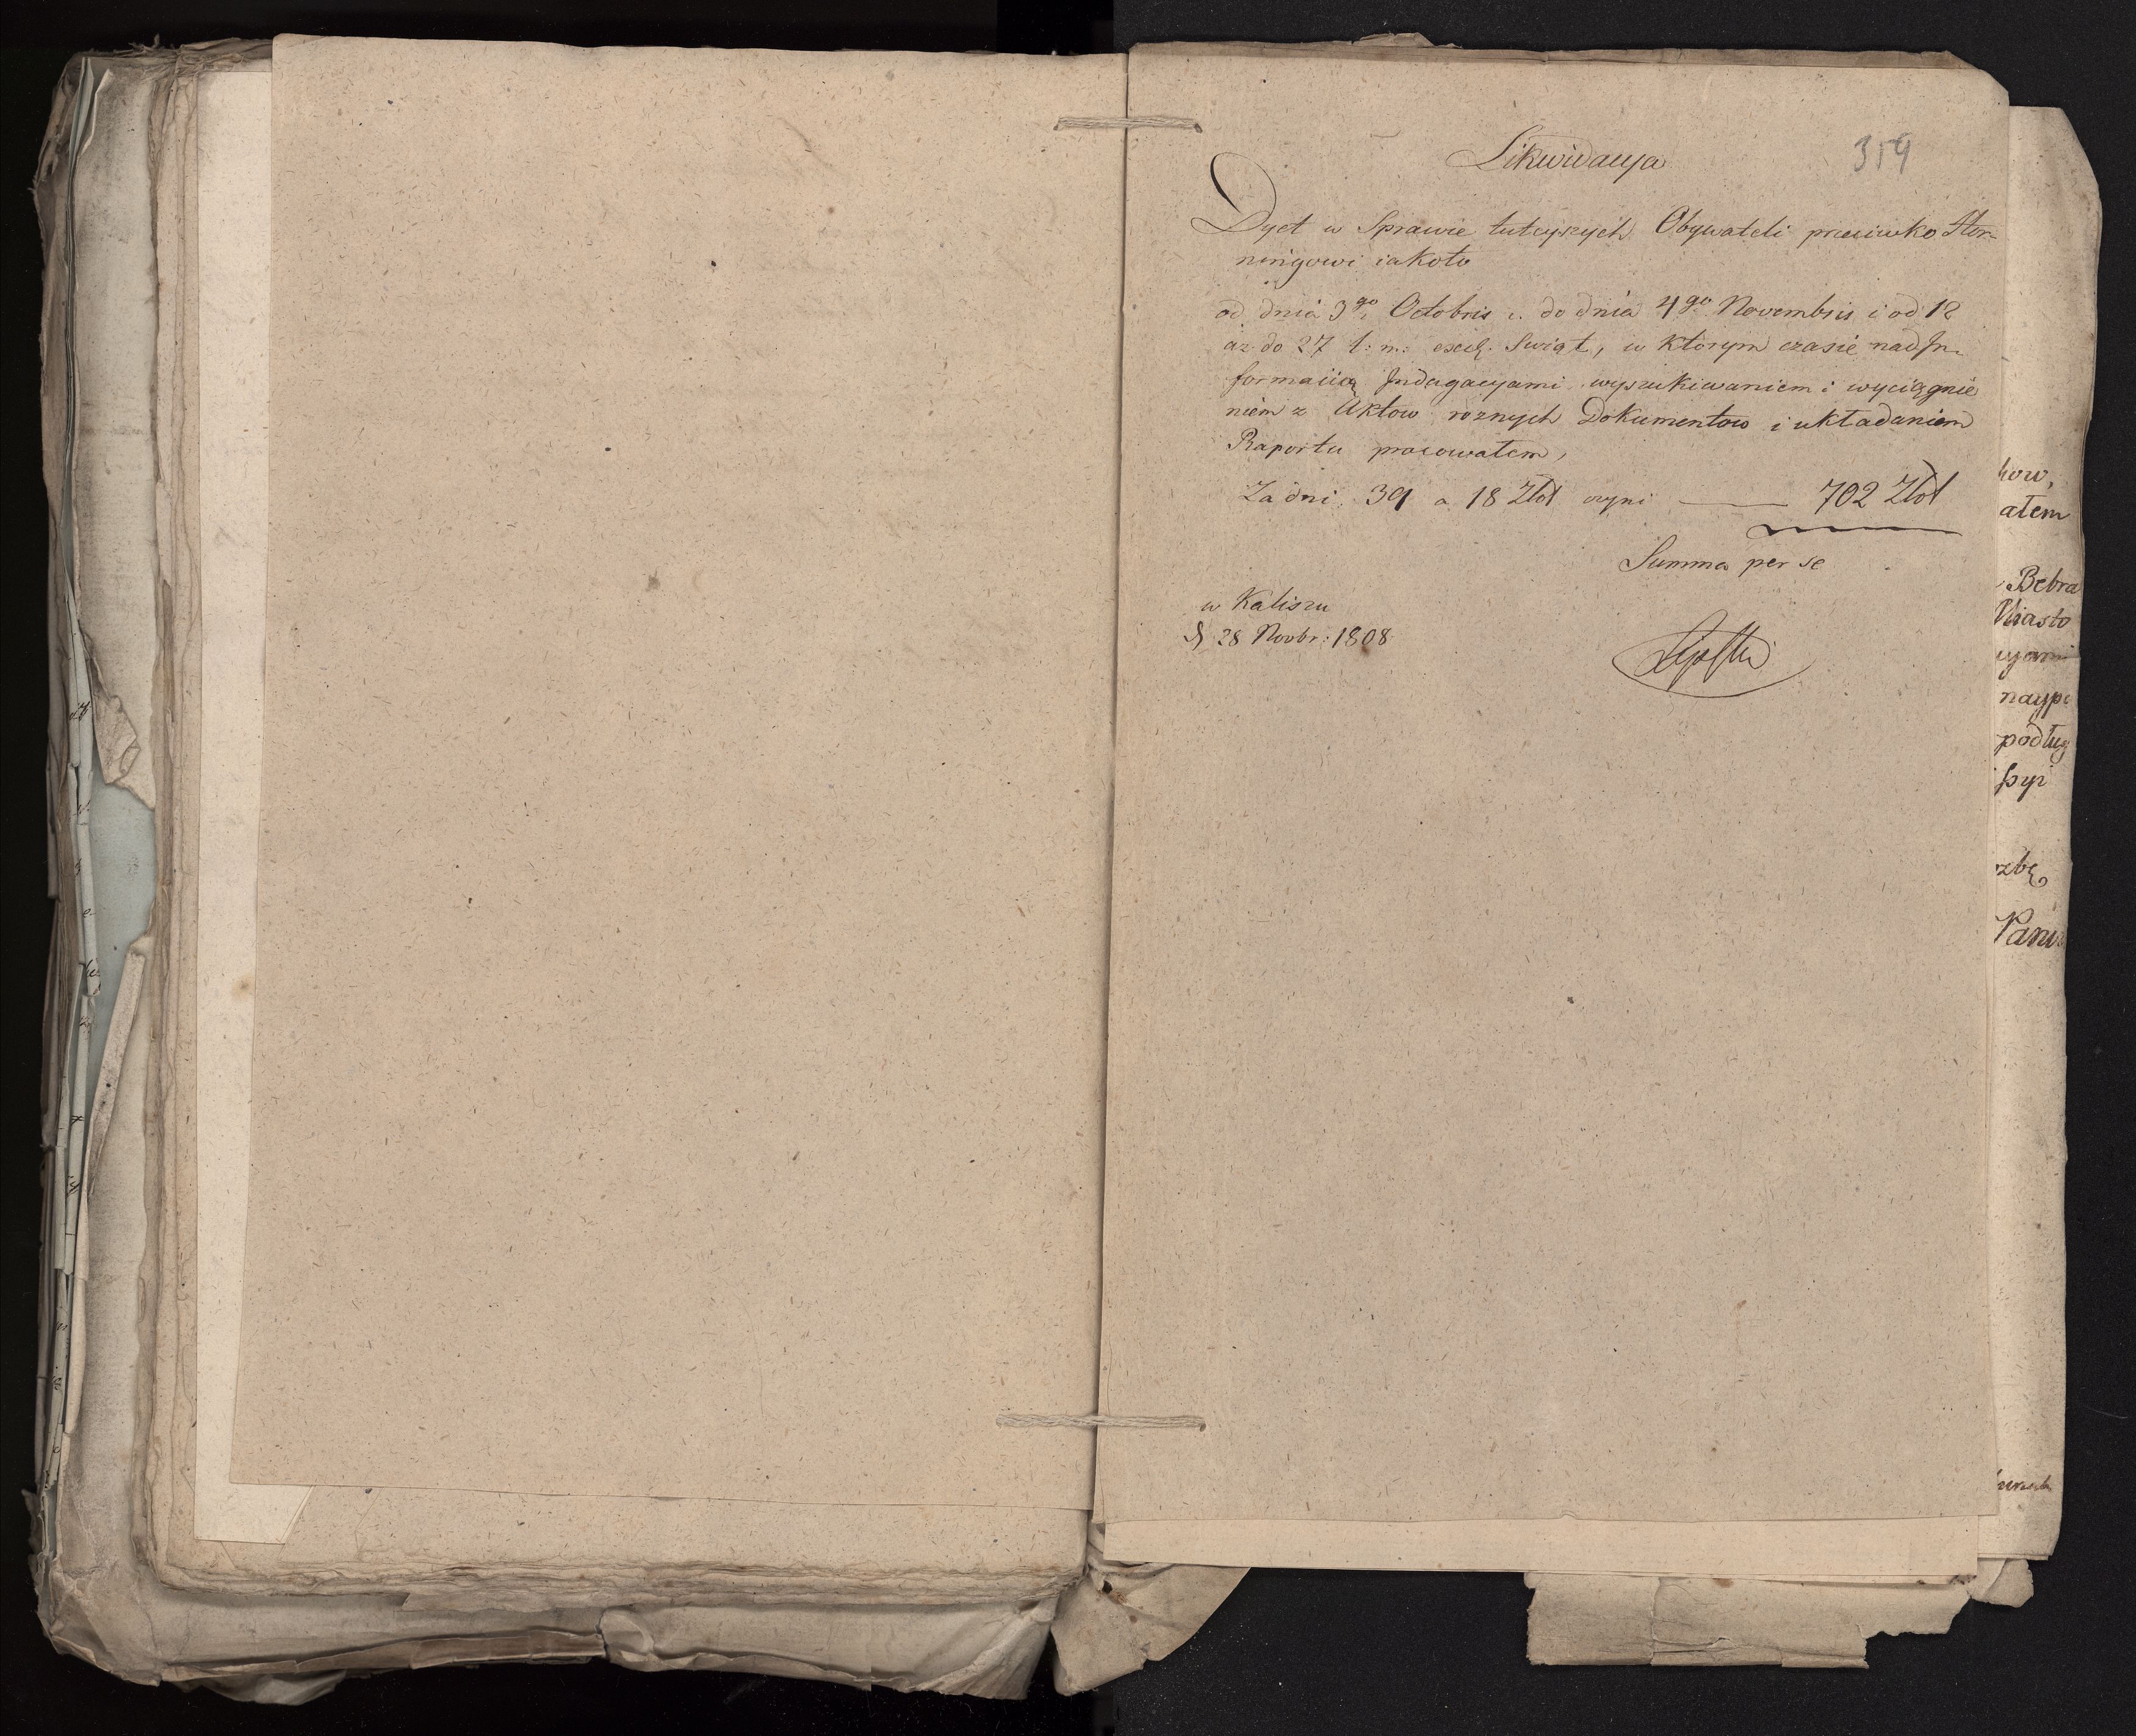 319
Likwidacya
Dyet w Sprawie tuteyszych Obywateli przeciwko Hor-
ningowi iakoto
od dnia 3go Octobris c. do dnia 4go Novembris i od 12
aż do 27 t: m: excl. Swiąt, w którym czasie nad In-
formacią Indagacyami wyszukiwaniem i wyciągnie
niem z Aktow roznych Dokumentow i układaniem
Raportu pracowałem,
Za dni 39 a 18 Złot czyni — 702 Złot
Summa per se
w Kaliszu
d 28 Novbr: 1808
Lipski
how,
ałem
Bebra
Miasto
cyami
nayp
podług
szyi
zbę
Panu